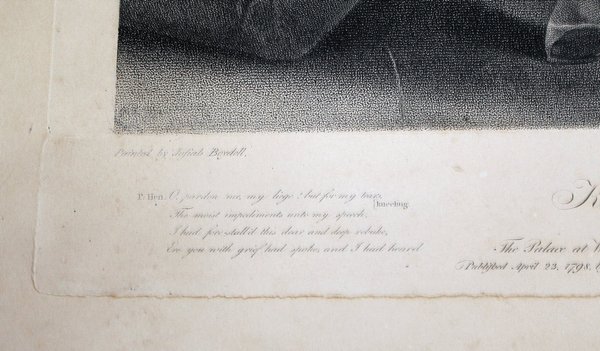 Painted by Josiah Boydell.
P. Hen. O, pardon me, my liege! but for my tears,
(kneeling.
The moist impediments unto my speech,
I had fore-stall'd this dear and deep rebuke,
Ere you with grief had spoke, and I had heard
K
The Palace at W
Published April 23, 1798, b